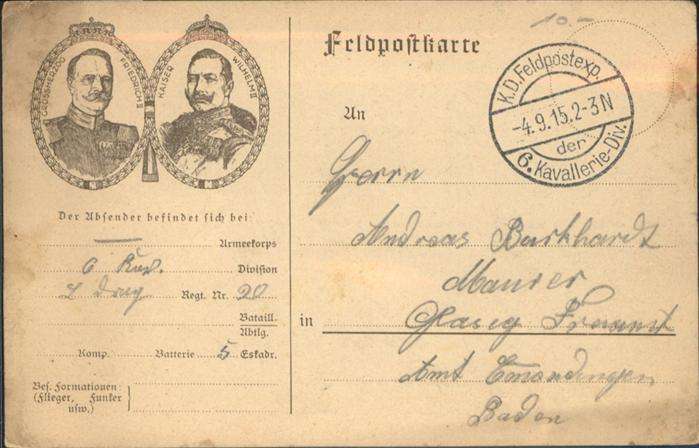 10.-
GROSSHERZOG FRIEDRICH II
KAISER WILHELM II
Feldpostkarte
K.D.Feldpostexp.
-4.9.15.2-3N
der
6.Kavallerie-Div.
Der Absender befindet sich bei:
— Armeekorps
6 Kav. Division
Drag Regt. Nr. 20
Bataill.
Abtlg.
Komp. Batterie 5 Eskadr.
Bes. Formationen:
(Flieger, Funker
usw.)
An
Herrn
Andreas Burkhardt
Maurer
in
Amt Emmendingen
Baden